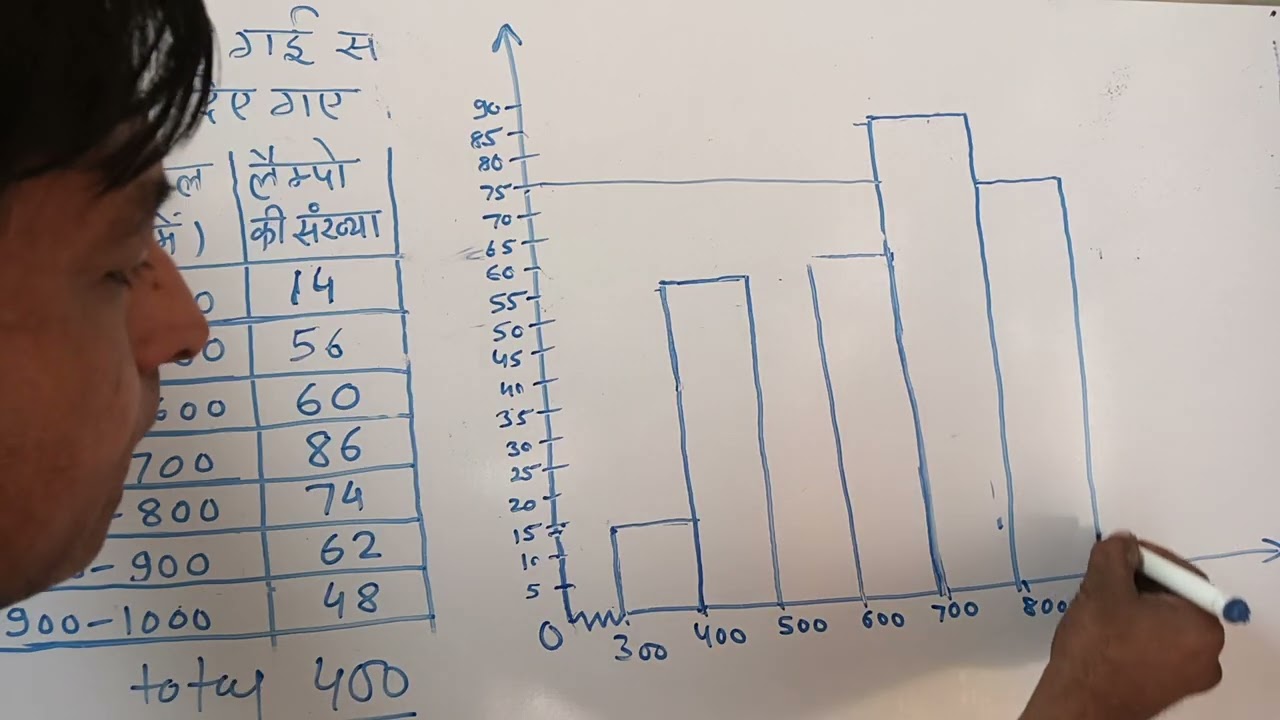 गई स
दिए गए
ल लैम्पो
में) की संख्या
0 14
00 56
600 60
700 86
-800 74
0-900 62
900-1000 48
total 400
90
85
80
75
70
65
60
55
50
45
40
35
30
25
20
15
10
5
0 300 400 500 600 700 800